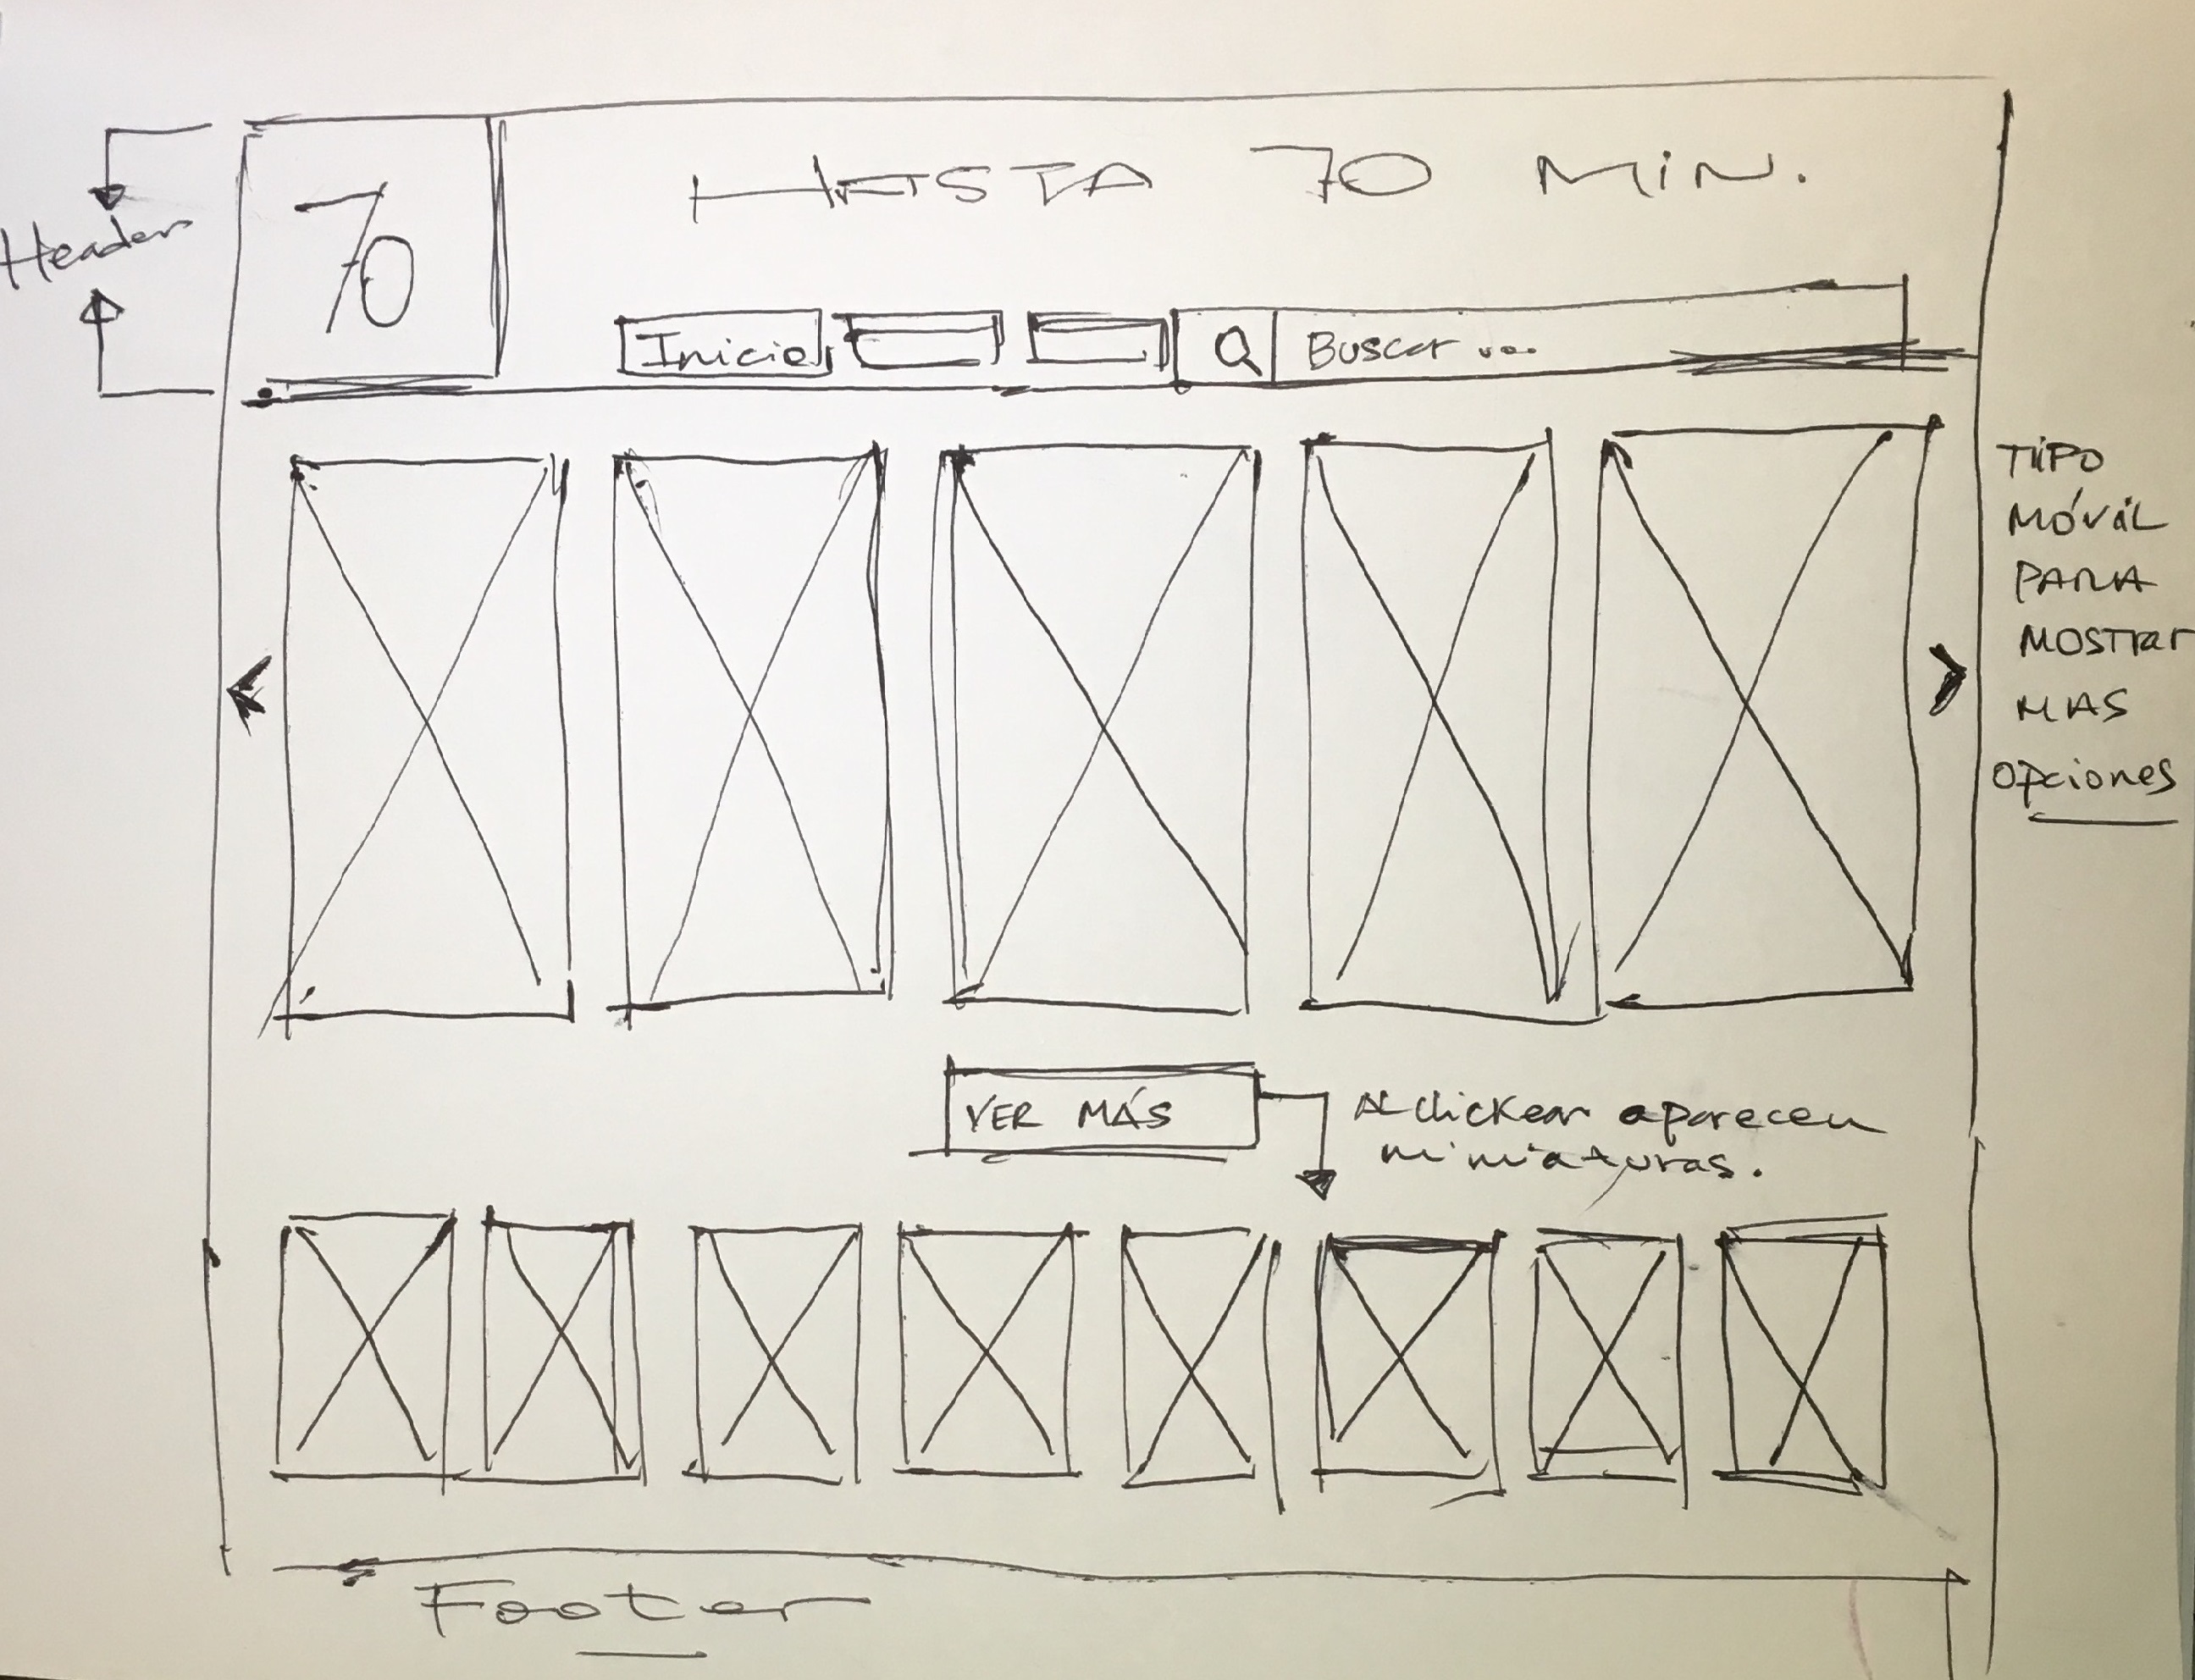 HASTA 70 MIN.
70
Header
Inicio
Buscar ...
TIPO
MÓVIL
PARA
MOSTRAR
MAS
opciones
VER MÁS
Al clickear aparecen
miniaturas.
Footer